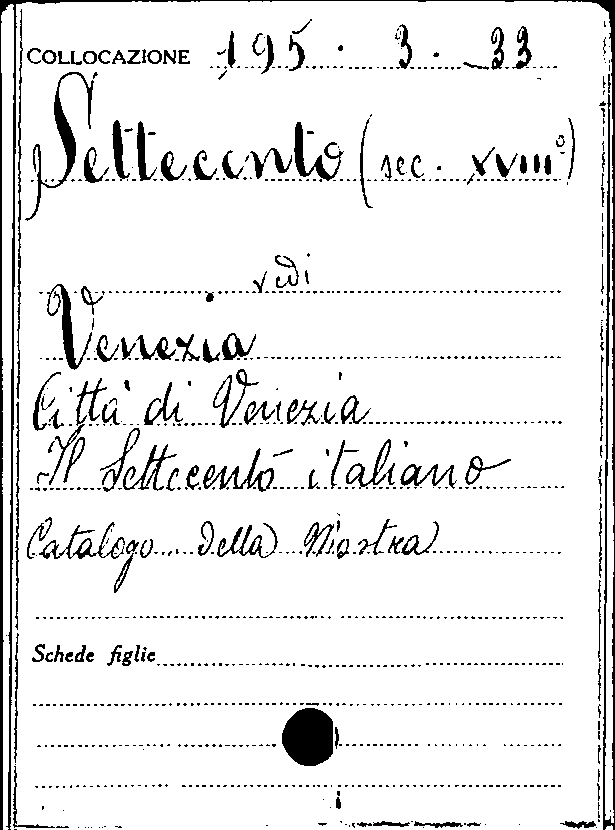 COLLOCAZIONE 195 . 3 . 33
Settecento (sec. XVIII°)
vedi
Venezia
Città di Venezia
Il Settecento italiano
Catalogo della Mostra
Schede figlie